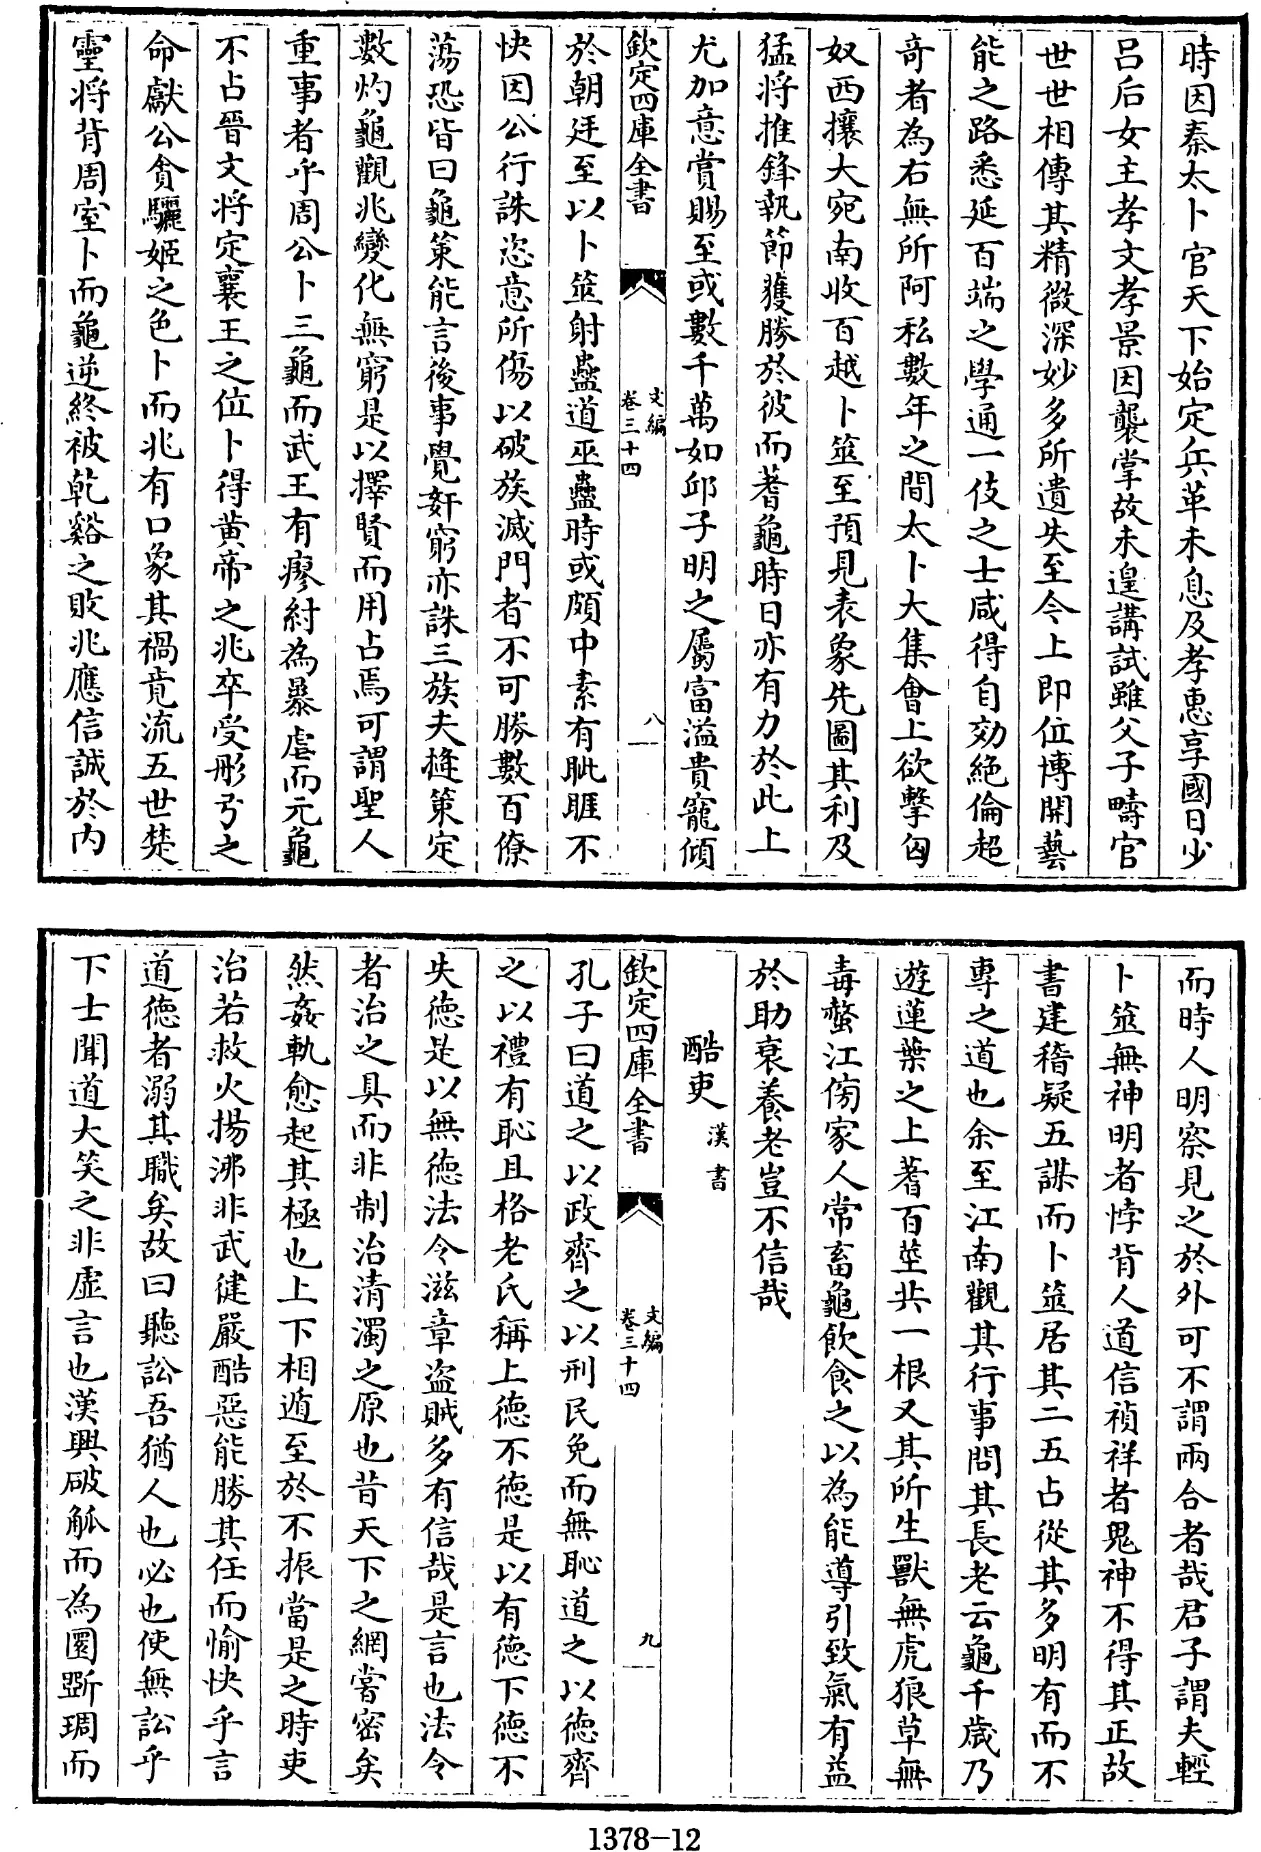 時因秦太卜官天下始定兵革未息及孝惠享國日少
呂后女主孝文孝景因襲掌故未遑講試雖父子疇官
世世相傳其精微深妙多所遺失至今上即位博開藝
能之路悉延百端之學通一伎之士咸得自効絶倫超
竒者為右無所阿私數年之間太卜大集會上欲擊匈
奴西攘大宛南收百越卜筮至預見表象先圖其利及
猛將推鋒執節獲勝於彼而蓍龜時日亦有力於此上
尤加意賞賜至或數千萬如邱子明之屬富溢貴寵傾
欽定四庫全書
文編
卷三十四
八
於朝廷至以卜筮射蠱道巫蠱時或頗中素有眦睚不
快因公行誅恣意所傷以破族滅門者不可勝數百僚
蕩恐皆曰龜策能言後事覺姧窮亦誅三族夫摓策定
數灼龜觀兆變化無窮是以擇賢而用占焉可謂聖人
重事者乎周公卜三龜而武王有瘳紂為暴虐而元龜
不占晉文將定襄王之位卜得黄帝之兆卒受彤弓之
命獻公貪驪姬之色卜而兆有口象其禍竟流五世楚
靈將背周室卜而龜逆終被乾谿之敗兆應信誠於内
而時人明察見之於外可不謂兩合者哉君子謂夫輕
卜筮無神明者悖背人道信禎祥者鬼神不得其正故
書建稽疑五謀而卜筮居其二五占從其多明有而不
專之道也余至江南觀其行事問其長老云龜千歲乃
遊蓮葉之上蓍百莖共一根又其所生獸無虎狼草無
毒螫江傍家人常畜龜飲食之以為能導引致氣有益
於助衰養老豈不信哉
酷吏 漢書
欽定四庫全書
文編
卷三十四
九
孔子曰道之以政齊之以刑民免而無恥道之以德齊
之以禮有恥且格老氏稱上德不德是以有德下德不
失德是以無德法令滋章盗賊多有信哉是言也法令
者治之具而非制治清濁之原也昔天下之網嘗密矣
然姦軌愈起其極也上下相遁至於不振當是之時吏
治若救火揚沸非武健嚴酷惡能勝其任而愉快乎言
道德者溺其職矣故曰聽訟吾猶人也必也使無訟乎
下士聞道大笑之非虚言也漢興破觚而為圜斲琱而
1378-12